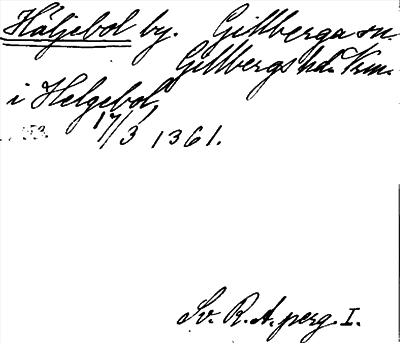 Häljebol by. Gillberga sn.
Gillbergs hd. Vrm.
i Helgebol,
17/3 1361.
Sv. R. A. perg. I.